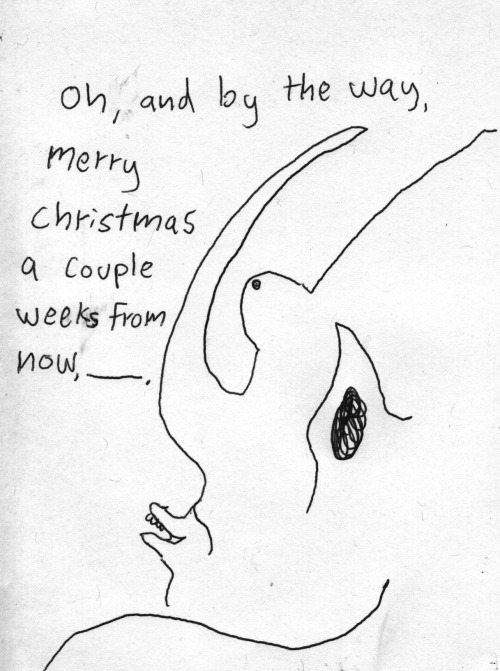 Oh, and by the way,
merry
christmas
a couple
weeks from
now, ___.